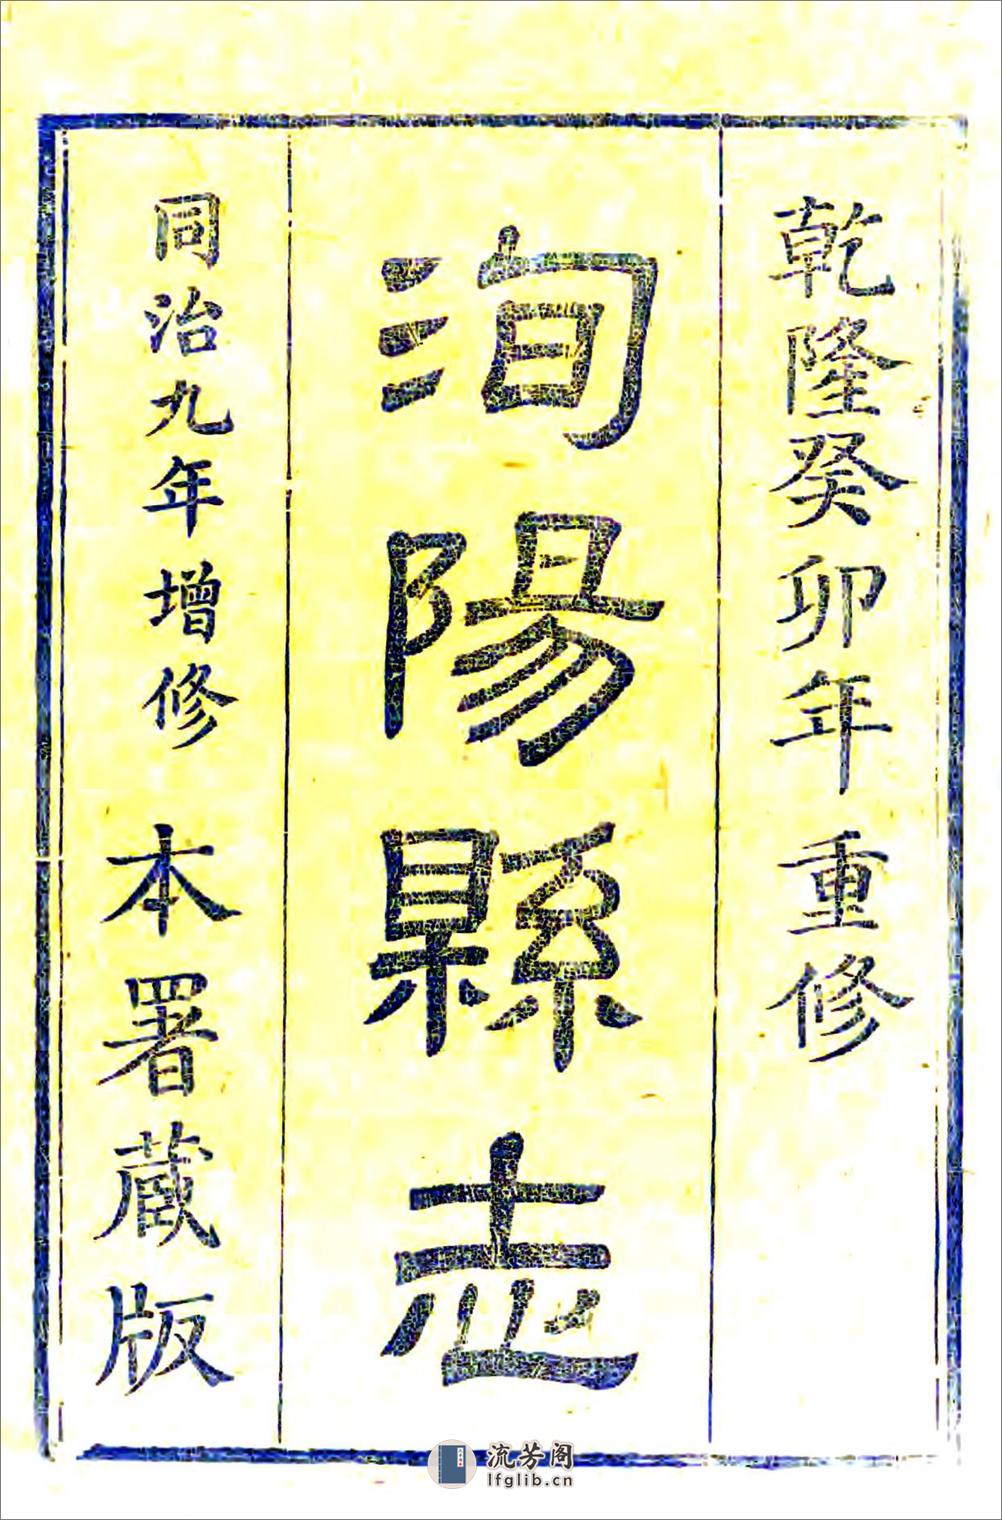 乾隆癸卯年重修
洵陽縣志
同治九年增修
本署藏版
流芳阁
lfglib.cn